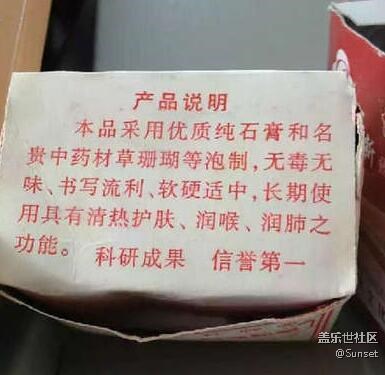 产品说明
本品采用优质纯石膏和名
贵中药材草珊瑚等泡制,无毒无
味、书写流利、软硬适中,长期使
用具有清热护肤、润喉、润肺之
功能。 科研成果 信誉第一
盖乐世社区
@Sunset